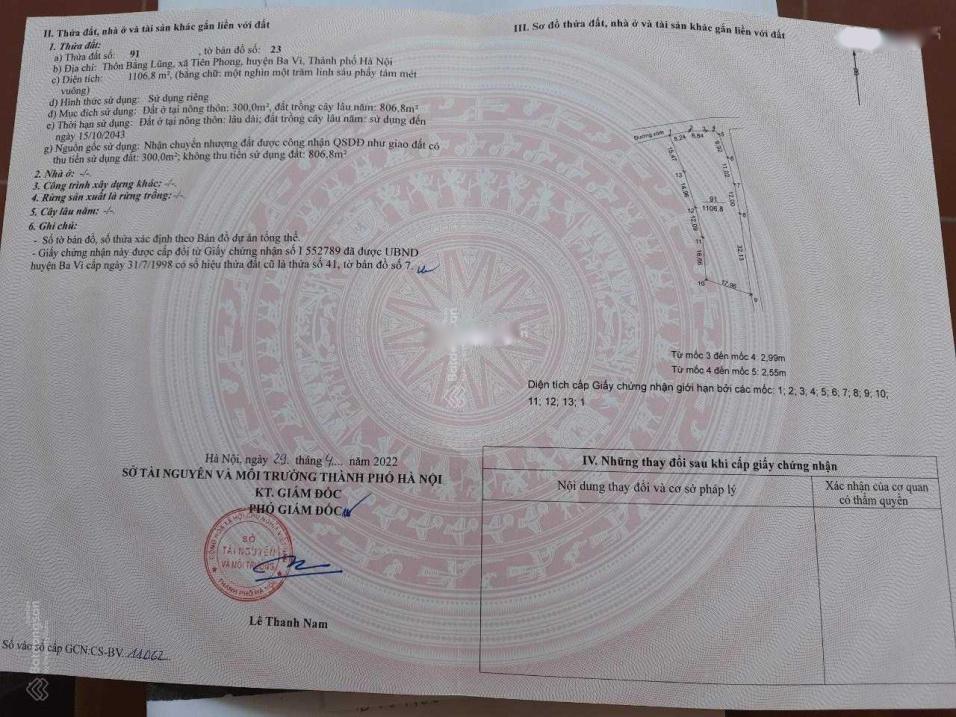 II. Thửa đất, nhà ở và tài sản khác gắn liền với đất
1. Thửa đất:
a) Thửa đất số: 91 , tờ bản đồ số: 23
b) Địa chỉ: Thôn Bằng Lũng, xã Tiên Phong, huyện Ba Vì, Thành phố Hà Nội
c) Diện tích: 1106.8 m², (bằng chữ: một nghìn một trăm linh sáu phẩy tám mét
vuông)
d) Hình thức sử dụng: Sử dụng riêng
đ) Mục đích sử dụng: Đất ở tại nông thôn: 300,0m², đất trồng cây lâu năm: 806,8m²
e) Thời hạn sử dụng: Đất ở tại nông thôn: lâu dài; đất trồng cây lâu năm: sử dụng đến
ngày 15/10/2043
g) Nguồn gốc sử dụng: Nhận chuyển nhượng đất được công nhận QSDĐ như giao đất có
thu tiền sử dụng đất: 300,0m²; không thu tiền sử dụng đất: 806,8m²
2. Nhà ở: -/-.
3. Công trình xây dựng khác: -/-.
4. Rừng sản xuất là rừng trồng: -/-
5. Cây lâu năm: -/-
6. Ghi chú:
- Số tờ bản đồ, số thửa xác định theo Bản đồ dự án tổng thể.
- Giấy chứng nhận này được cấp đổi từ Giấy chứng nhận số I 552789 đã được UBND
huyện Ba Vì cấp ngày 31/7/1998 có số hiệu thửa đất cũ là thửa số 41, tờ bản đồ số 7.
Hà Nội, ngày 29 tháng 4 năm 2022
SỞ TÀI NGUYÊN VÀ MÔI TRƯỜNG THÀNH PHỐ HÀ NỘI
KT. GIÁM ĐỐC
PHÓ GIÁM ĐỐC
SỞ
TÀI NGUYÊN
VÀ MÔI TRƯỜNG
THÀNH PHỐ HÀ NỘI
Lê Thanh Nam
Số vào sổ cấp GCN:CS-BV 11062
III. Sơ đồ thửa đất, nhà ở và tài sản khác gắn liền với đất
B
Đường xóm
6,24
6,84
9,92
11,02
12,00
32,13
17,96
16,05
12,09
14,96
15,47
91
1106.8
Từ mốc 3 đến mốc 4: 2,99m
Từ mốc 4 đến mốc 5: 2,55m
Diện tích cấp Giấy chứng nhận giới hạn bởi các mốc: 1; 2; 3; 4; 5; 6; 7; 8; 9; 10;
11; 12; 13; 1
IV. Những thay đổi sau khi cấp giấy chứng nhận
Nội dung thay đổi và cơ sở pháp lý
Xác nhận của cơ quan
có thẩm quyền
Batdongsan